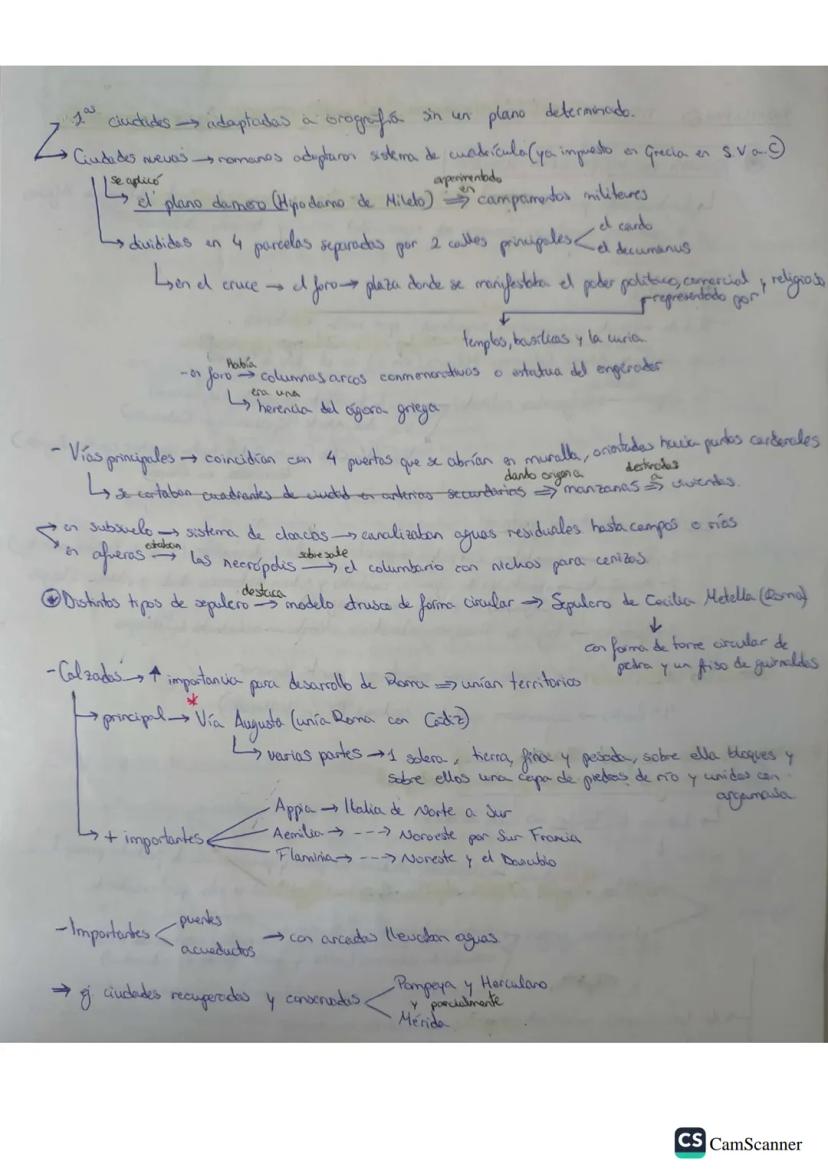 1as ciudades → adaptadas a orografía sin un plano determinado.
→ Ciudades nuevas → romanos adoptaron sistema de cuadrícula (ya impuesto en Grecia en S.V a.C)
se aplicó → el plano damero (Hipodamo de Mileto) experimentado en ⇒ campamentos militares
→ divididas en 4 parcelas separadas por 2 calles principales < el cardo
el decumanus
→ en el cruce → el foro → plaza donde se manifestaba el poder político, comercial y religioso
representado por
templos, basílicas y la curia.
- en foro Había → columnas arcos conmemorativos o estatua del emperador
era una → herencia del ágora griega
- Vías principales → coincidían con 4 puertas que se abrían en muralla, orientadas hacia puntos cardenales
→ se cortaban cuadrantes de ciudad en arterias secundarias dando origen a ⇒ manzanas destinadas a ⇒ viviendas.
→ en subsuelo → sistema de cloacas → canalizaban aguas residuales hasta campos o ríos
→ en afueras estaban → las necrópolis sobresale → el columbario con nichos para cenizas.
Distintos tipos de sepulcro destaca → modelo etrusco de forma circular → Sepulcro de Cecilia Metella (Roma)
↓
con forma de torre circular de
piedra y un friso de guirnaldas
- Calzadas → ↑ importancia para desarrollo de Roma ⇒ unían territorios
→ principal → * Vía Augusta (unía Roma con Cádiz)
→ varias partes → 1 solera, tierra, fina y pesada, sobre ella bloques y
sobre ellos una capa de piedras de río y unidas con
argamasa
Appia → Italia de Norte a Sur
→ + importantes < Aemilia → ---> Noroeste por Sur Francia
Flaminia → ---> Noreste y el Danubio
- Importantes < puentes
acueductos → con arcadas llevaban aguas.
⇒ ej ciudades recuperadas y conservadas < Pompeya y Herculano
y parcialmente
Mérida
CS CamScanner